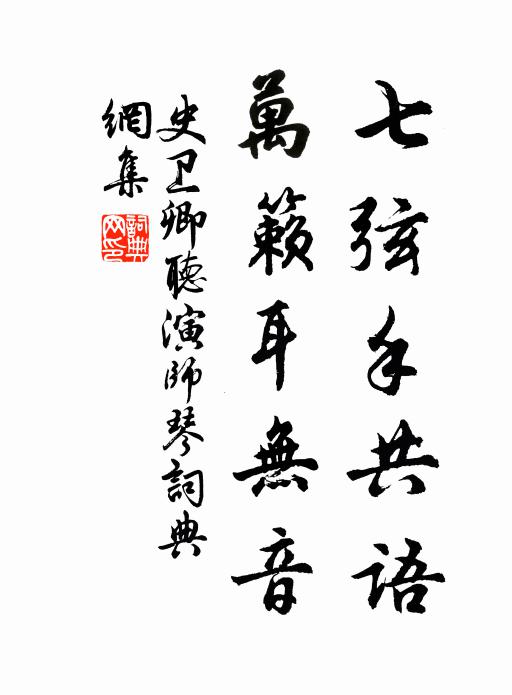 七弦手共語
萬籟耳無音
史卫卿聽演師琴詞典
網集
詞典
网印